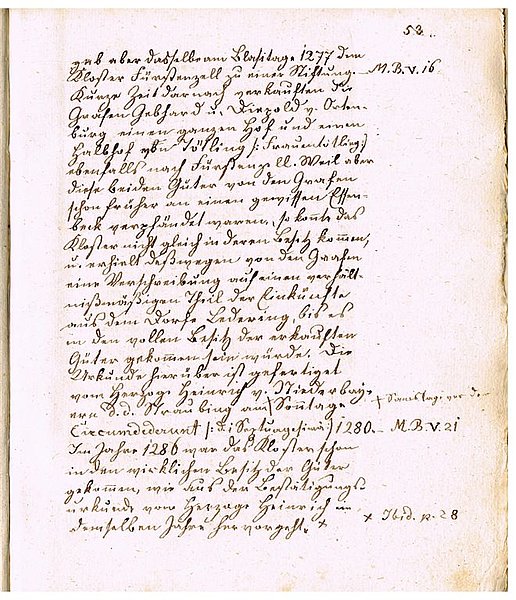 53.
gab aber dasselbe am Blasitage 1277 dem
Kloster Fürstenzell zu einer Stiftung. M.B.V. 16
Kurze Zeit darnach verkauften die
Grafen Gebhard u. Diepold v. Orten-
burg einen ganzen Hof und einen
Halbhof von Tötling /: Frauentötling :/
ebenfalls nach Fürstenzell. Weil aber
diese beiden Güter von den Grafen
schon früher an einen gewissen Essen-
beck verpfändet waren, so konnte das
Kloster nicht gleich in deren Besitz kommen,
u. erhielt deßwegen von den Grafen
eine Verschreibung auf einen verhält-
nißmäßigen Theil der Einkünfte
aus dem Dorfe Bedering, bis es
in den vollen Besitz der erkauften
Güter gekommen sein würde. Die
Urkunde hierüber ist gefertiget
vom Herzoge Heinrich v. Niederbay-
ern d.d. Straubing am Sonntage + Samstag vor dem
Circumdederunt /: i. Septuagesimä :/ 1280. M.B.V. 21
Im Jahre 1286 war das Kloster schon
in den wirklichen Besitz der Güter
gekommen, wie aus der Bestätigungs-
urkunde vom Herzoge Heinrich in
demselben Jahre hervorgeht. + + Ibid. p. 28